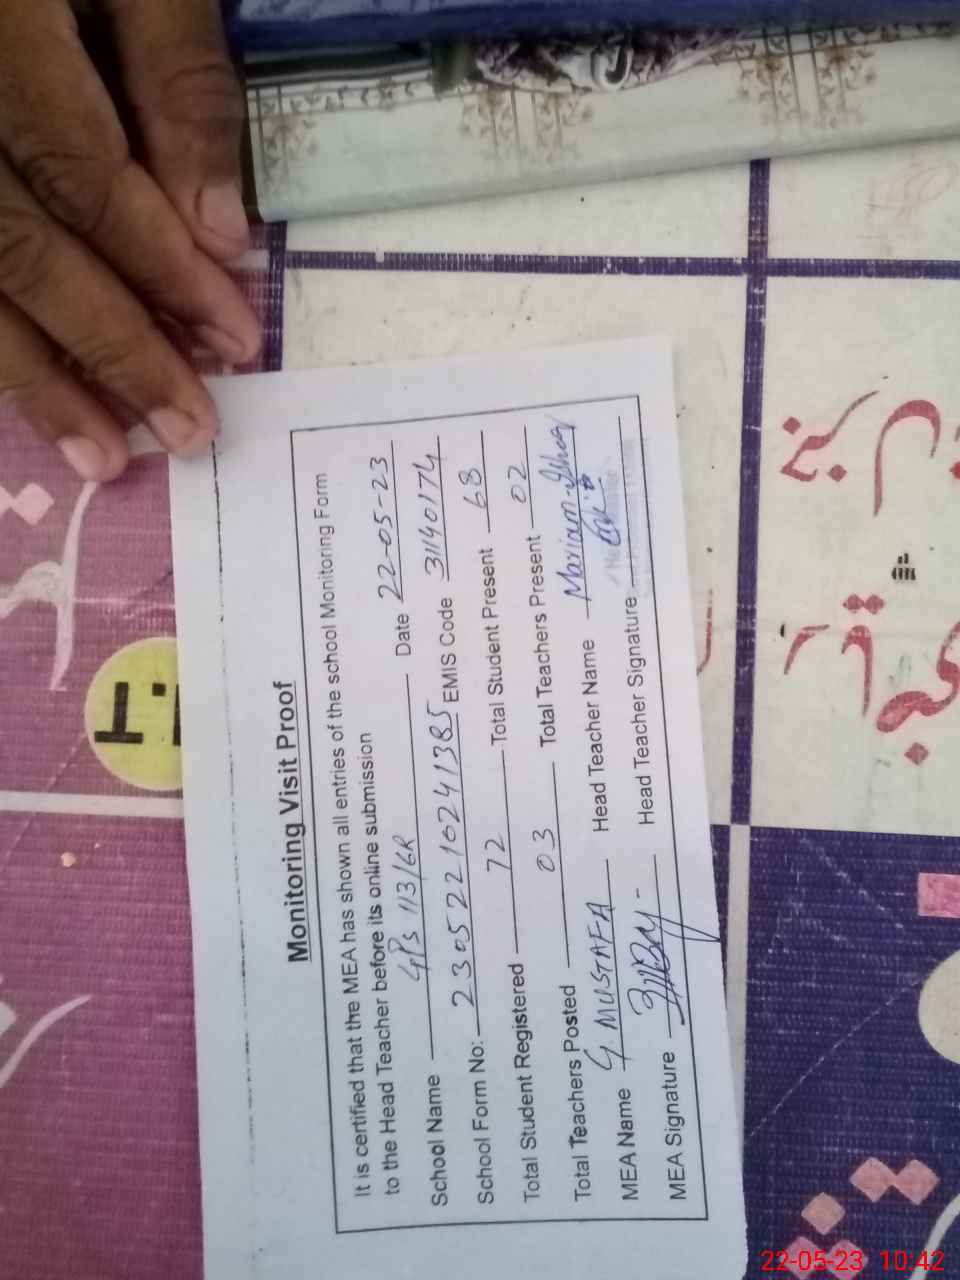 Monitoring Visit Proof
It is certified that the MEA has shown all entries of the school Monitoring Form
to the Head Teacher before its online submission
School Name GPS 113/6R Date 22-05-23
School Form No: 230522162413​85 EMIS Code 31140174
Total Student Registered 72 Total Student Present 68
Total Teachers Posted 03 Total Teachers Present 02
MEA Name G. MUSTAFA Head Teacher Name Mariam-Ishaq
MEA Signature Head Teacher Signature
22-05-23 10:42